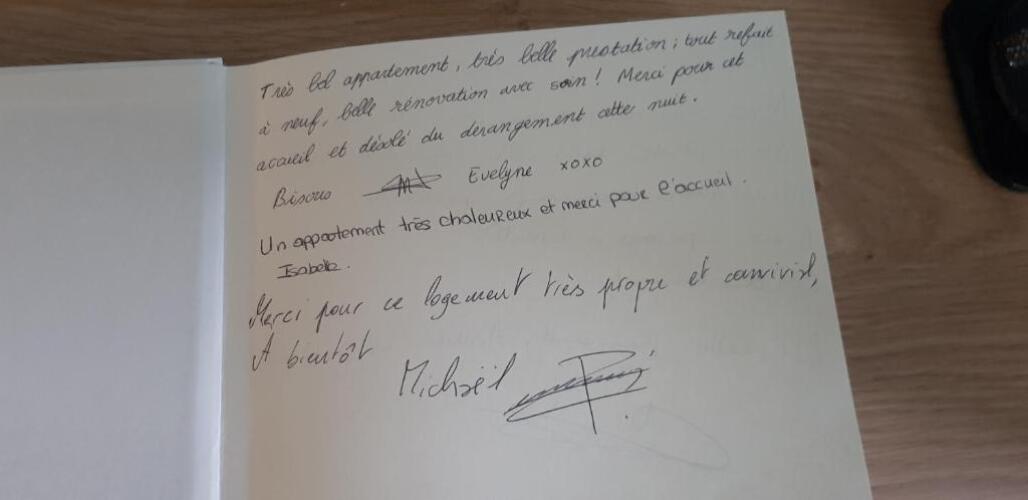 Très bel appartement, très belle prestation ; tout refait
à neuf, belle rénovation avec soin ! Merci pour cet
accueil et désolé du dérangement cette nuit.
Bisous Evelyne xoxo
Un appartement très chaleureux et merci pour l'accueil.
Isabelle.
Merci pour ce logement très propre et convivial,
A bientôt
Michaël